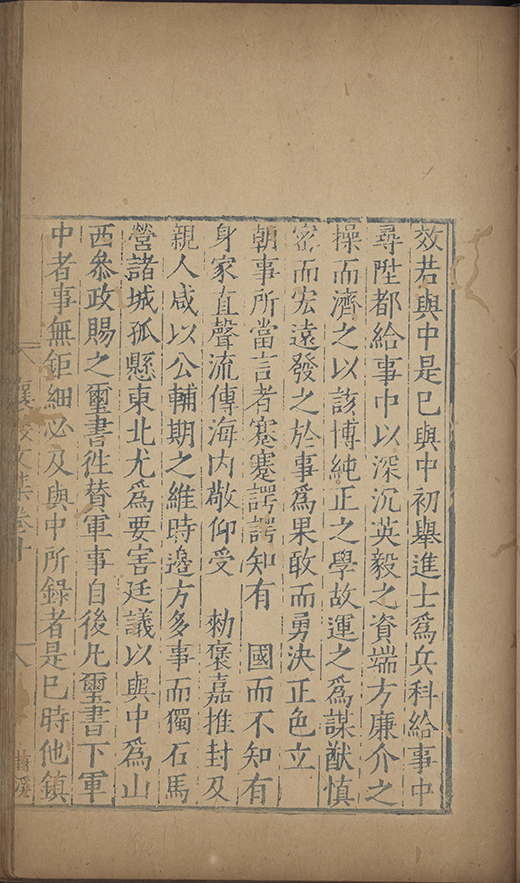 效若與中是已與中初舉進士爲兵科給事中
尋陞都給事中以深沉英毅之資端方廉介之
操而濟之以該博純正之學故運之爲謀猷慎
密而宏遠發之於事爲果敢而勇決正色立
朝事所當言者蹇蹇諤諤知有 國而不知有
身家直聲流傳海内敬仰受 勑褒嘉推封及
親人咸以公輔期之維時邊方多事而獨石馬
營諸城孤懸東北尤爲要害廷議以與中爲山
西叅政賜之璽書徃賛軍事自後凡璽書下軍
中者事無鉅細必及與中所録者是已時他鎮
文集卷十